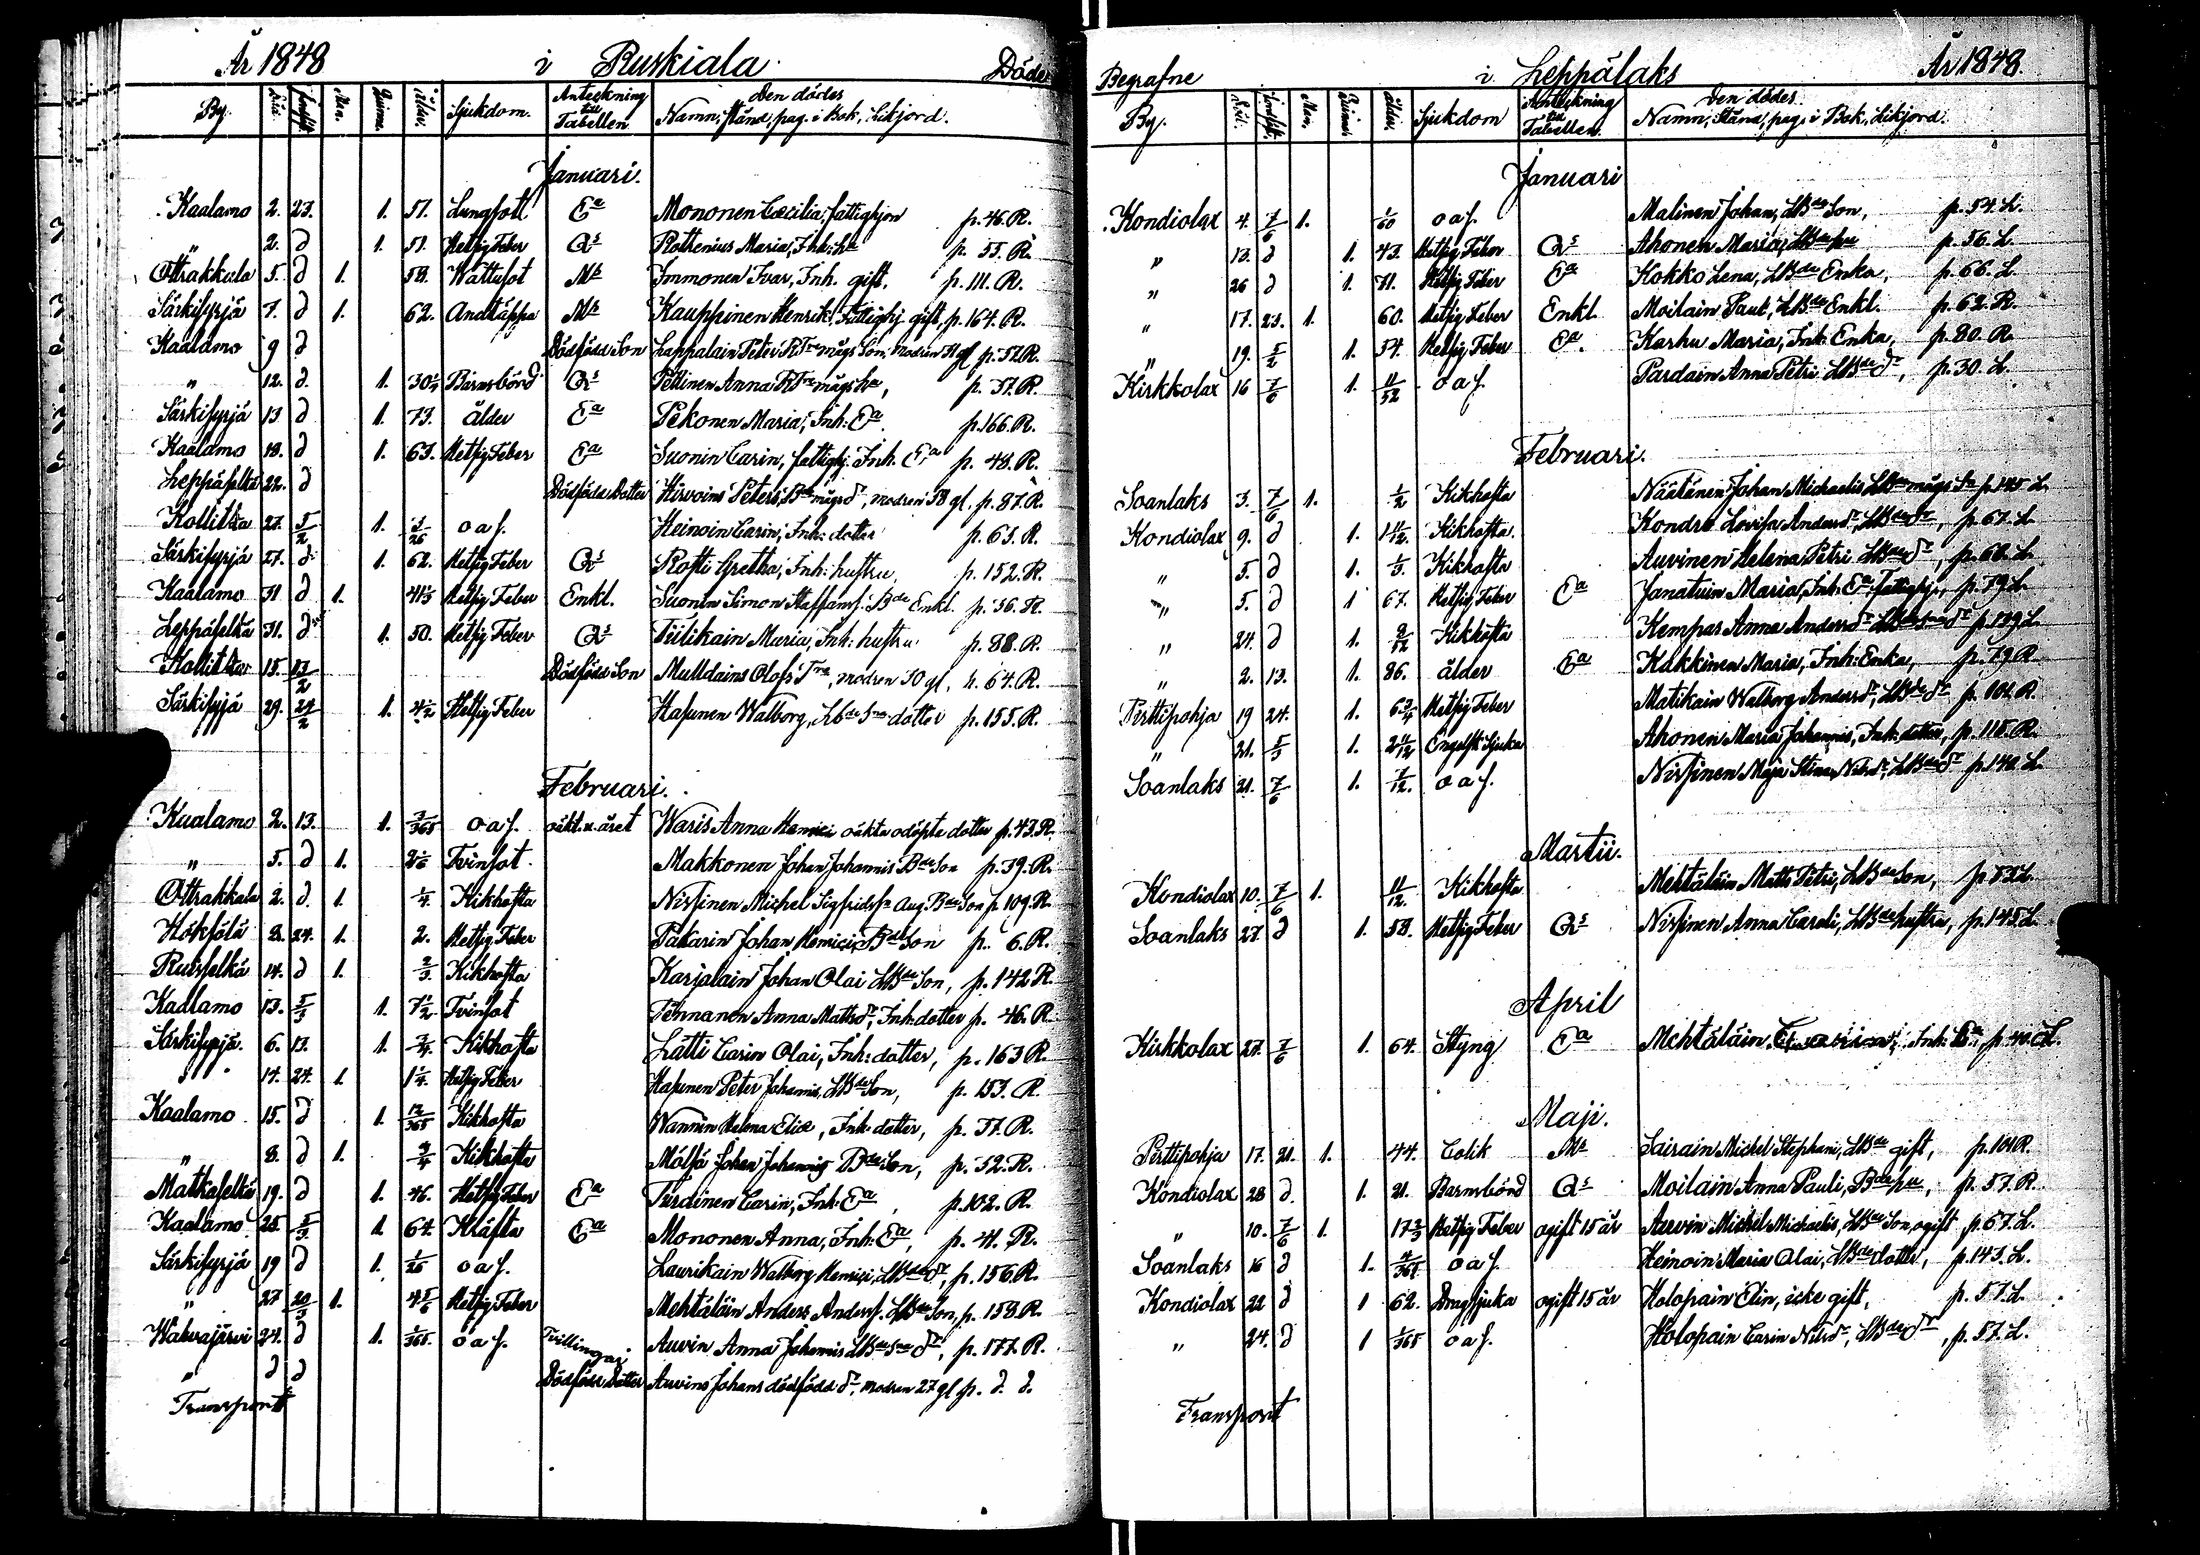 År 1848 i Ruskiala Döde
By. Död. Jordfäst. Mn. Qvinnr. Ålder. Sjukdom. Anteckning till Tabellen. Den dödes Namn, Stånd, pag. i Bok, Likjord.
Januari.
Kaalamo 2. 23. 1. 51. Lungsott Ea Mononen Cæcilia, fattighjon p. 46. R.
" 2. d 1. 51. Hetsig Feber Qs Rothenius Maria, Inh: hu p. 55. R.
Ottrakkala 5. d 1. 58. Wattusot Mk Immonen Ivar, Inh. gift, p. 111. R.
Särkisyrjä 7. d 1. 62. Andtäppa Mk Kauppinen Henrik, Fattighj. gift, p. 164. R.
Kaalamo 9 d Dödfödd Son Lappalain Peter RTre mågs Son, modren 31 gl p. 52 R.
" 12. d. 1. 30 Barnsbörd Qs Pellinen Anna RTre mågs hu, p. 51. R.
Särkisyrjä 13. d 1. 73. ålder Ea Pekonen Maria, Inh: Ea. p. 166. R.
Kaalamo 19. d 1. 63. Hetsig Feber Ea Suonin Carin, fattighj. Inh. Ea p. 48. R.
Leppäselkä 22. d Dödfödd Dotter Hirvoins Peters, Bde mågs dr, modren 38 gl, p. 87. R.
Kollitka 27. 5/2 1. 1/26 o a s. Heinoin Carin, Inh: dotter p. 63. R.
Särkisyrjä 27. d 1. 62. Hetsig Feber Qs Rosti Gretha, Inh: hustru, p. 152. R.
Kaalamo 31 d 1. 41 Hetsig Feber Enkl. Suonin Simon Staffans. Bde Enkl. p. 56. R.
Leppäselkä 31. d 1. 50. Hetsig Feber Qs Tiilikain Maria, Inh: hustru p. 88. R.
Kollitka 15. 13/2 Dödfödd Son Mulldains Olofs Tre, modren 30 gl, p. 64. R.
Särkisyrjä 29. 24/2 1. 4½ Hetsig Feber Hasunen Walborg, Lbde Sns dotter p. 155. R.
Februari.
Kaalamo 2. 13. 1. 3/365 o a s. oäkt. u. året Waris Anna Henrici oäkta odöpta dotter p. 43. R.
" 5. d 1. 2 1/6 Tvinsot. Makkonen Johan Johannis Bde Son p. 39. R.
Ottrakkala 2. d. 1. 1/4 Kikhosta Nissinen Michel Sigfridss. Aug. Bde Son p. 109. R.
Höksölä 8. 24. 1. 2. Hetsig Feber Pakarin Johan Henrici, Bde Son p. 6. R.
Ruisselkä 14. d 1. 2/3. Kikhosta Karjalain Johan Olai LBde Son, p. 142 R.
Kaalamo 13. 5/3 1. 7½ Tvinsot Tennanen Anna Mattsdr, Inh: dotter p. 46. R.
Särkisyrjä. 6. 13. 1. 3/4. Kikhosta Lätti Carin Olai, Inh: dotter, p. 163 R.
" 14. 24. 1. 1¼. Hetsig Feber Hasunen Peter Johannis, LBde Son, p. 153. R.
Kaalamo 15. d 1. 12/365 Kikhosta Wannin Helena Eliæ, Inh: dotter, p. 57. R.
" 8. d 1. 3/4 Kikhosta Mölsä Johan Johannis Bde Son, p. 52. R.
Matkaselkä 19. d 1. 46. Hetsig Feber Ea Turdinen Carin, Inh: Ea, p. 102. R.
Kaalamo 25 5/3. 1. 64. Kräfta Ea Mononen Anna, Inh: Ea, p. 41. R.
Särkisyrjä 19 d 1. 1/26 o a s. Laurikain Walborg Henrici, LBde dr, p. 156. R.
" 27 20/3 1. 4 5/6 Hetsig Feber Mehtäläin Anders Anderss. LBde Son, p. 158. R.
Wakvajärvi 24. d 1. 1/365. o a s. Tvillingar Auvin Anna Johannis LBde Sns dr, p. 177. R.
" d d Dödfödd Dotter Auvins Johans dödfödd dr, modren 27 gl p. d. d.
Transport
Begrafne i Leppälaks År 1848.
By. Död. Jordfäst. Mn. Qvinnr. Ålder. Sjukdom Anteckning till Tabellen. Den dödes Namn, Stånd, pag. i Bok, Likjord.
Januari
Kondiolax 4. 7/6 1. 1/60 o a s. Malinen Johan, LBde Son, p. 54. L.
" 13. d 1. 43. Hetsig Feber Qs Ahonen Maria, LBde hu p. 56. L.
" 26 d 1. 71. Hetsig Feber Ea Kokko Lena, LBde Enka, p. 66. L.
" 17. 23. 1. 60. Hetsig Feber Enkl. Moilain Paul, LBde Enkl. p. 62. R.
" 19. 5/2 1. 54. Hetsig Feber Ea. Karhu Maria, Inh: Enka, p. 80. R.
Kirkkolax 16 7/6 1. 11/52 o a s. Pardain Anna Petri LBde dr, p. 30. L.
Februari.
Soanlaks 3. 7/6 1. 1/2 Kikhosta Näätänen Johan Michaelis LBde mågs Sn p. 145 L.
Kondiolax 9. d 1. 1 11/12. Kikhosta. Kondru Lovisa Andersdr, LBde dr, p. 67. L.
" 5. d 1. 1/3. Kikhosta Auvinen Helena Petri LBde dr, p. 68. L.
" 5. d 1 67. Hetsig Feber Ea Janatuin Maria, Inh: Ea, fattighj, p. 79 L.
" 24. d 1. 9/52 Kikhosta Kempas Anna Andersdr LBde Sns dr p. 139 L.
" 2. 13. 1. 86. ålder Ea Kakkinen Maria, Inh: Enka, p. 79 R.
Pirttipohja 19 24. 1. 6¾ Hetsig Feber Matikain Walborg Andersdr, LBde dr p. 101. R.
" 21. 5/3 1. 2 11/12 Engelsk Sjuka Ahonen Maria Johannis, Inh: dotter, p. 116. R.
Soanlaks 21. 7/6 1. 7/12. o a s. Nissinen Maja Stina Nilsdr, LBde dr p. 140. L.
Martii.
Kondiolax 10. 7/6 1. 11/12. Kikhosta Mehtäläin Matts Petri, LBde Son, p. 52 L.
Soanlaks 27. d 1. 58. Hetsig Feber Qs Nissinen Anna Caroli, LBde hustru, p. 145. L.
April
Kirkkolax 27. 7/6 1. 64. Styng Ea Mehtäläin Inh: Ea, L.
Maji.
Pirttipohja 17. 21. 1. 44. Colik Mk Sairain Michel Stephani, LBde gift, p. 101 R.
Kondiolax 28 d. 1. 21. Barnsbörd Qs Moilain Anna Pauli, Bde hu, p. 57. R.
" 10. 7/6 1. 17⅔ Hetsig Feber ogift 15 år Auvin Michel Michaelis, LBde Son, ogift p. 67. L.
Soanlaks 16 d 1. 4/365 o a s. Heinoin Maria Olai, LBde dotter, p. 143. L.
Kondiolax 22 d 1 62. Bragsjuka ogift 15 år Holopain Elin, icke gift, p. 57. L.
" 24. d 1 1/365 o a s. Holopain Carin Nilsdr, LBde dr, p. 57. L.
Transport